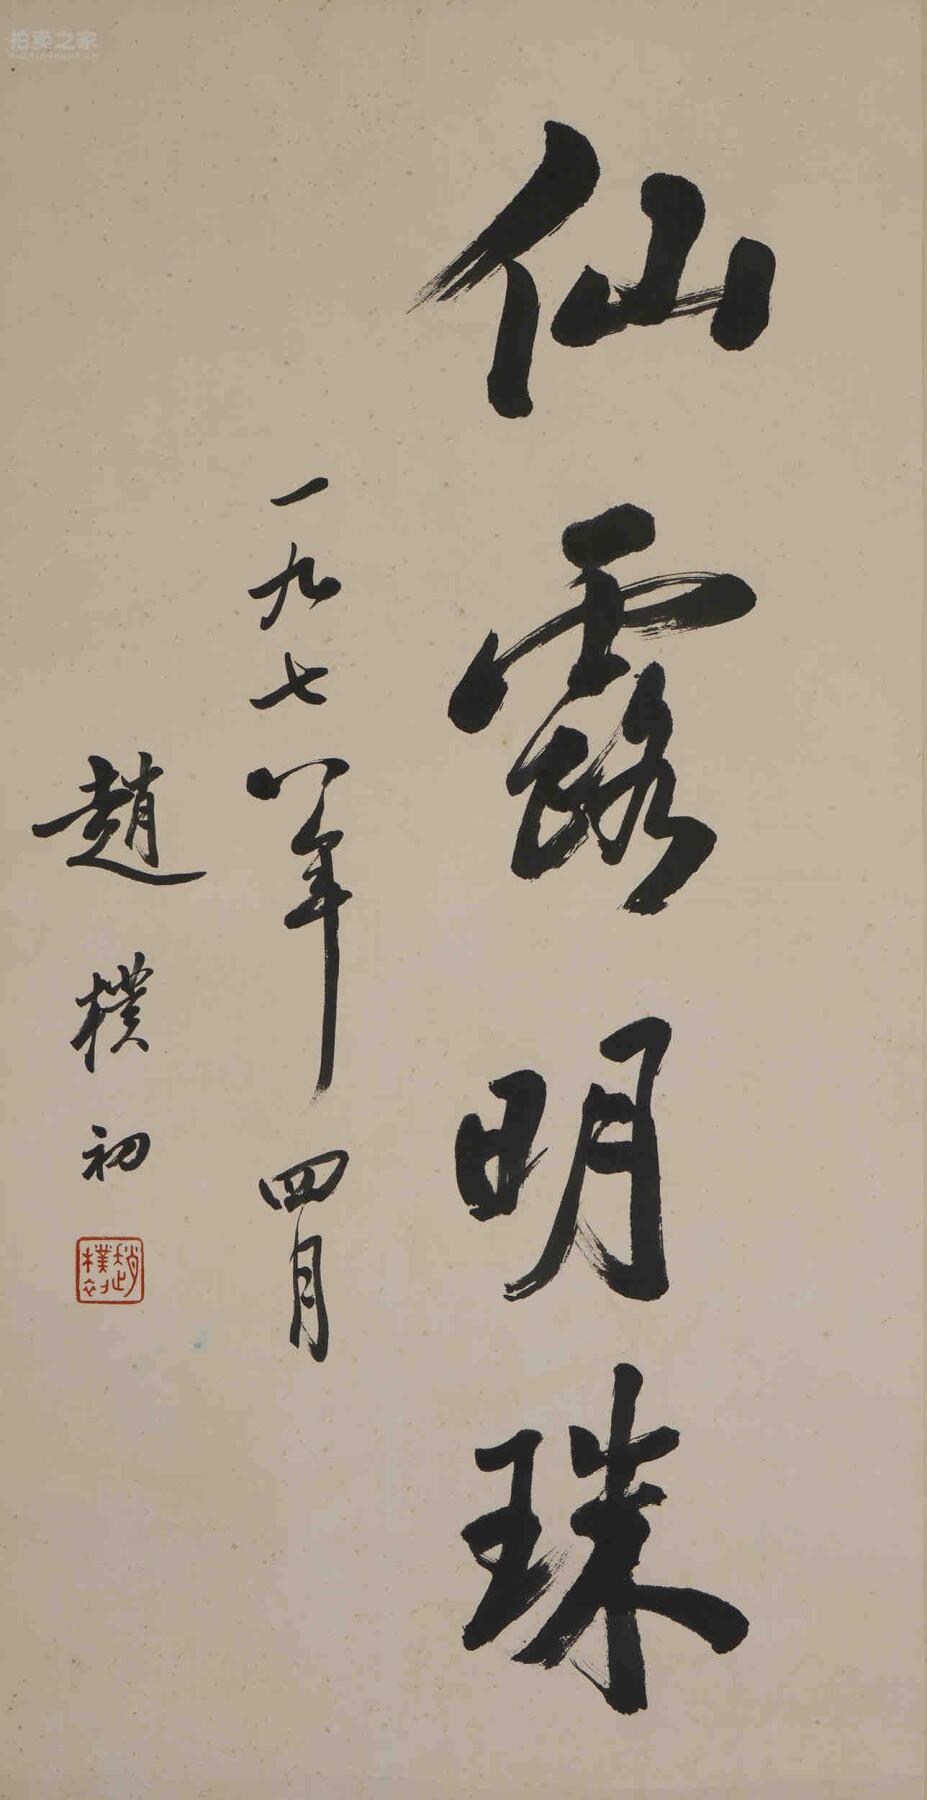 仙露明珠
一九七八年四月
趙樸初
趙樸初
拍卖之家